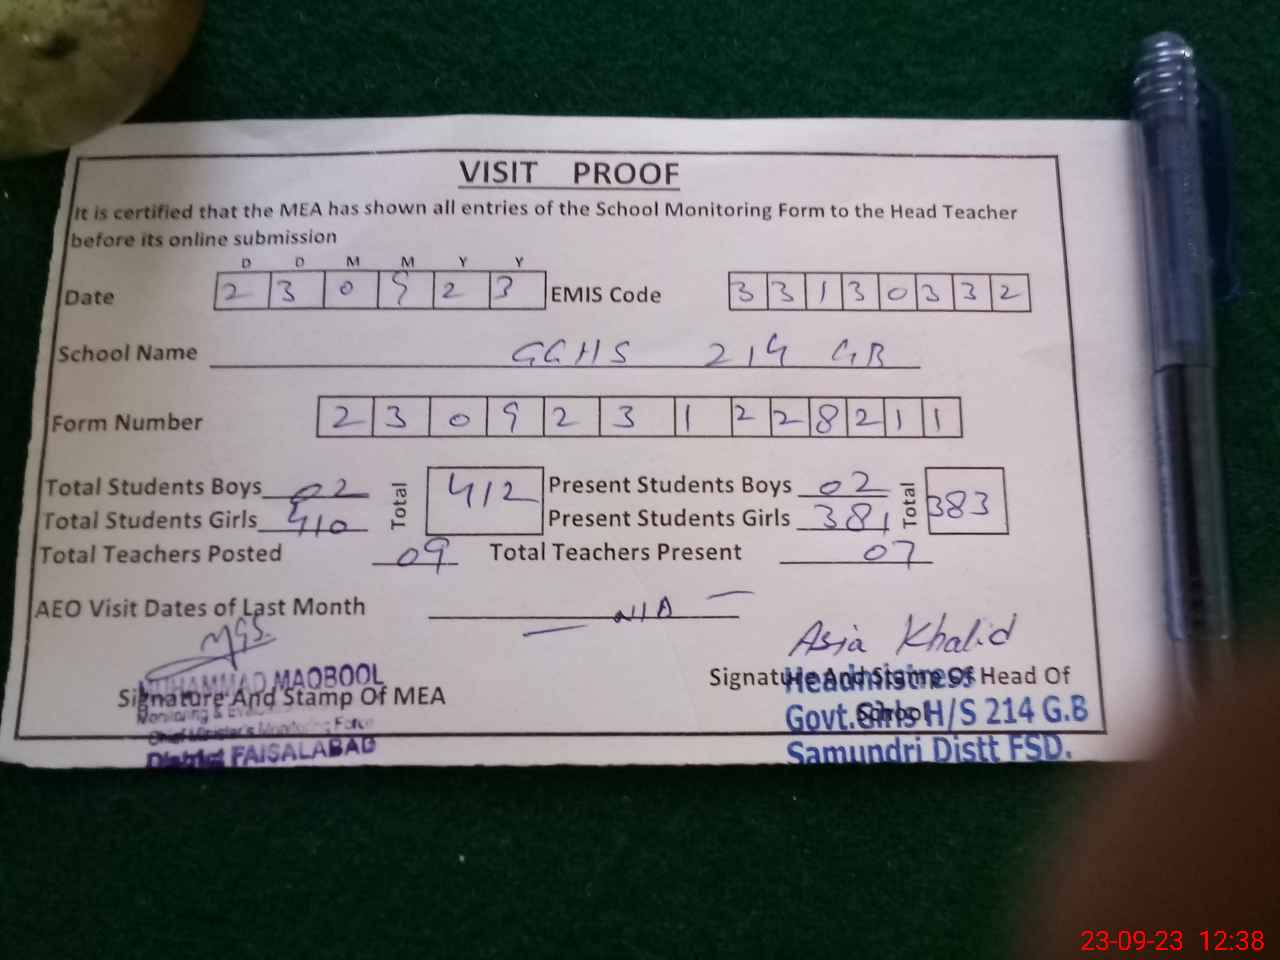 VISIT PROOF
It is certified that the MEA has shown all entries of the School Monitoring Form to the Head Teacher
before its online submission
D D M M Y Y
Date 2 3 0 9 2 3 EMIS Code 3 3 1 3 0 3 3 2
School Name GGHS 214 GB
Form Number 2 3 0 9 2 3 1 2 2 8 2 1 1
Total Students Boys 02 Total 412 Present Students Boys 02 Total 383
Total Students Girls 410 Present Students Girls 381
Total Teachers Posted 09 Total Teachers Present 07
AEO Visit Dates of Last Month — N/A —
Asia Khalid
MUHAMMAD MAQBOOL
Signature And Stamp Of MEA Signature And Stamp Of Head Of
School
Headmistress
Monitoring &
Chief Minister's Monitoring Force
Govt. Girls H/S 214 G.B
District FAISALABAD
Samundri Distt FSD.
23-09-23 12:38